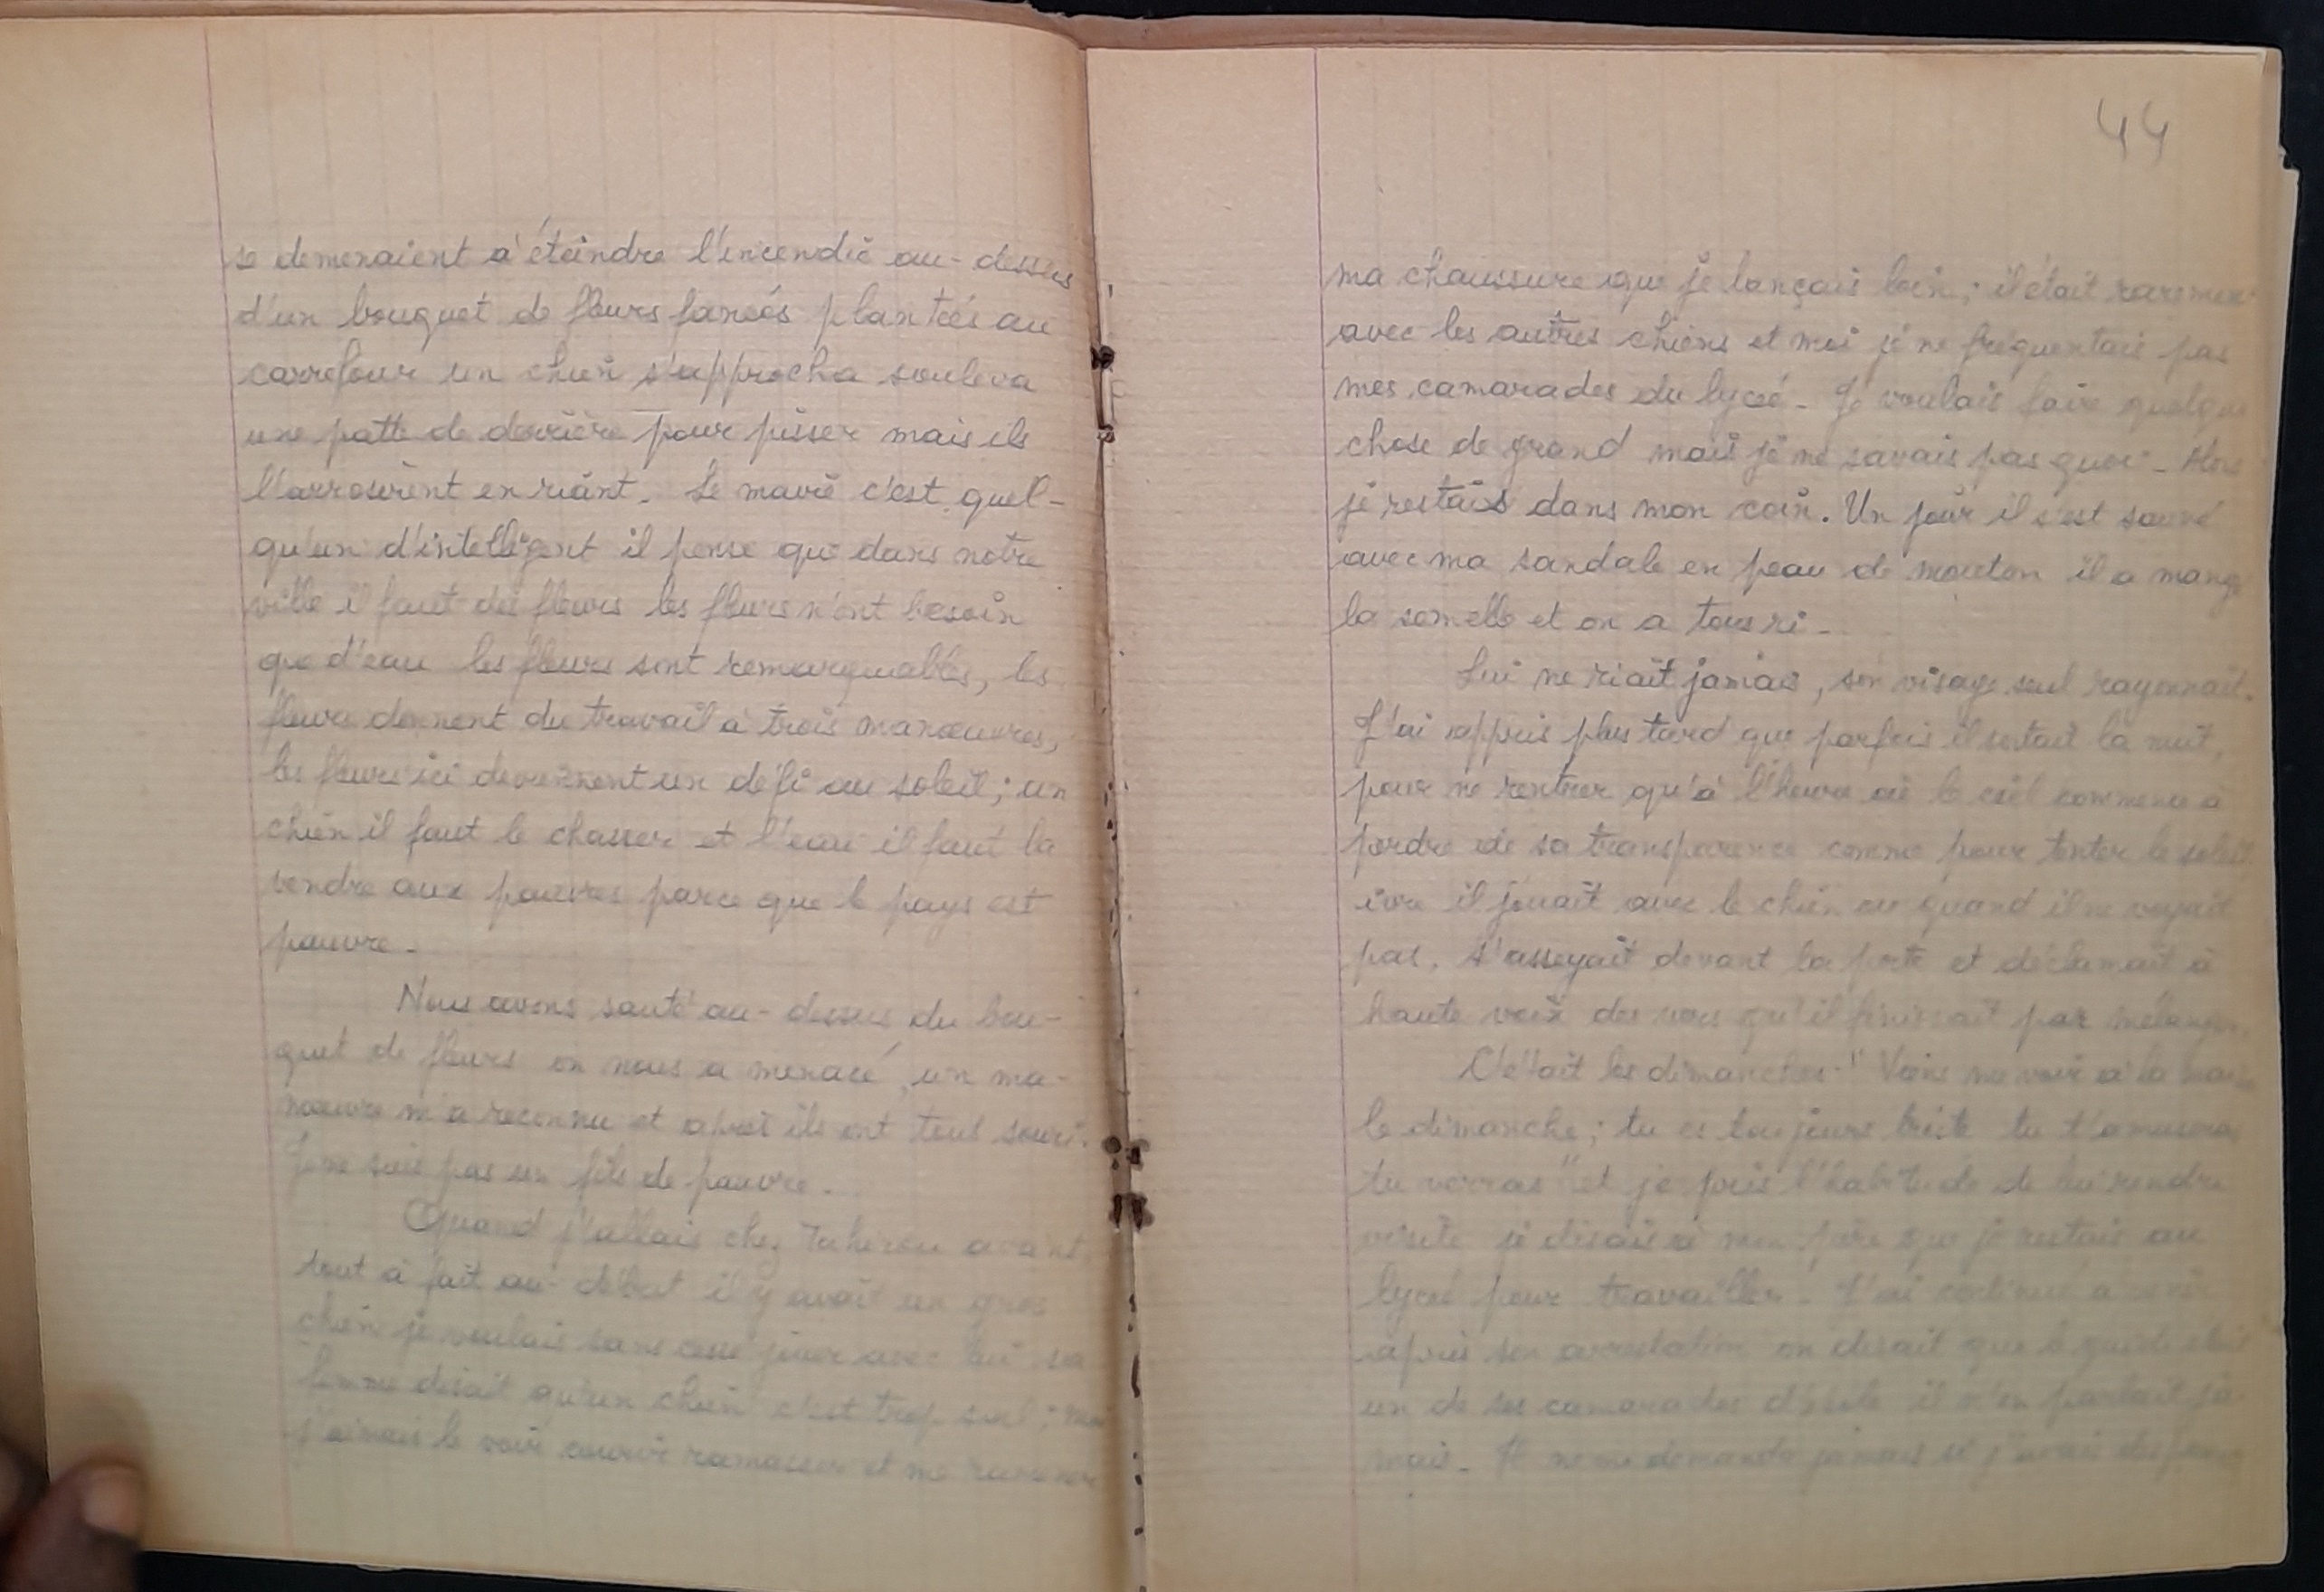 se demenaient à éteindre l'incendie au-dessus
d'un bouquet de fleurs fanées plantées au
carrefour un chien s'approcha souleva
une patte de derrière pour pisser mais ils
l'arrosèrent en riant. Le maire c'est quel-
qu'un d'intelligent il pense que dans notre
ville il faut des fleurs les fleurs n'ont besoin
que d'eau les fleurs sont remarquables, les
fleurs donnent du travail à trois manœuvres,
les fleurs ici deviennent un défi au soleil; un
chien il faut le chasser et l'eau il faut la
vendre aux pauvres parce que le pays est
pauvre.
Nous avons sauté au-dessus du bou-
quet de fleurs on nous a menacé, un ma-
nœuvre m'a reconnu et après ils ont tous souri.
Je ne suis pas un fils de pauvre.
Quand j'allais chez Tahirou avant,
tout à fait au-début il y avait un gros
chien je voulais sans cesse jouer avec lui sa
femme disait qu'un chien c'est trop sal; moi
j'aimais le voir courir ramasser et me ramener
44
ma chaussure que je lançais loin; il était rarement
avec les autres chiens et moi je ne fréquentais pas
mes camarades du lycée. Je voulais faire quelque
chose de grand mais je ne savais pas quoi. Alors
je restais dans mon coin. Un jour il s'est sauvé
avec ma sandale en peau de mouton il a mangé
la semelle et on a tous ri.
Lui ne riait jamais, son visage seul rayonnait.
J'ai appris plus tard que parfois il sortait la nuit,
pour ne rentrer qu'à l'heure où le ciel commence à
perdre de sa transparence comme pour tenter le soleil
ivre il jouait avec le chien ou quand il ne voyait
pas, s'asseyait devant la porte et déclamait à
haute voix des vers qu'il finissait par mélanger.
C'était les dimanches." Viens me voir à la maison
le dimanche; tu es toujours triste tu t'amuseras
tu verras" et je pris l'habitude de lui rendre
visite je disais à mon père que je restais au
lycée pour travailler. J'ai continué à venir
après son arrestation on disait que le garde était
un de ses camarades d'école il n'en parlait ja-
mais. Il ne me demanda jamais si j'avais des